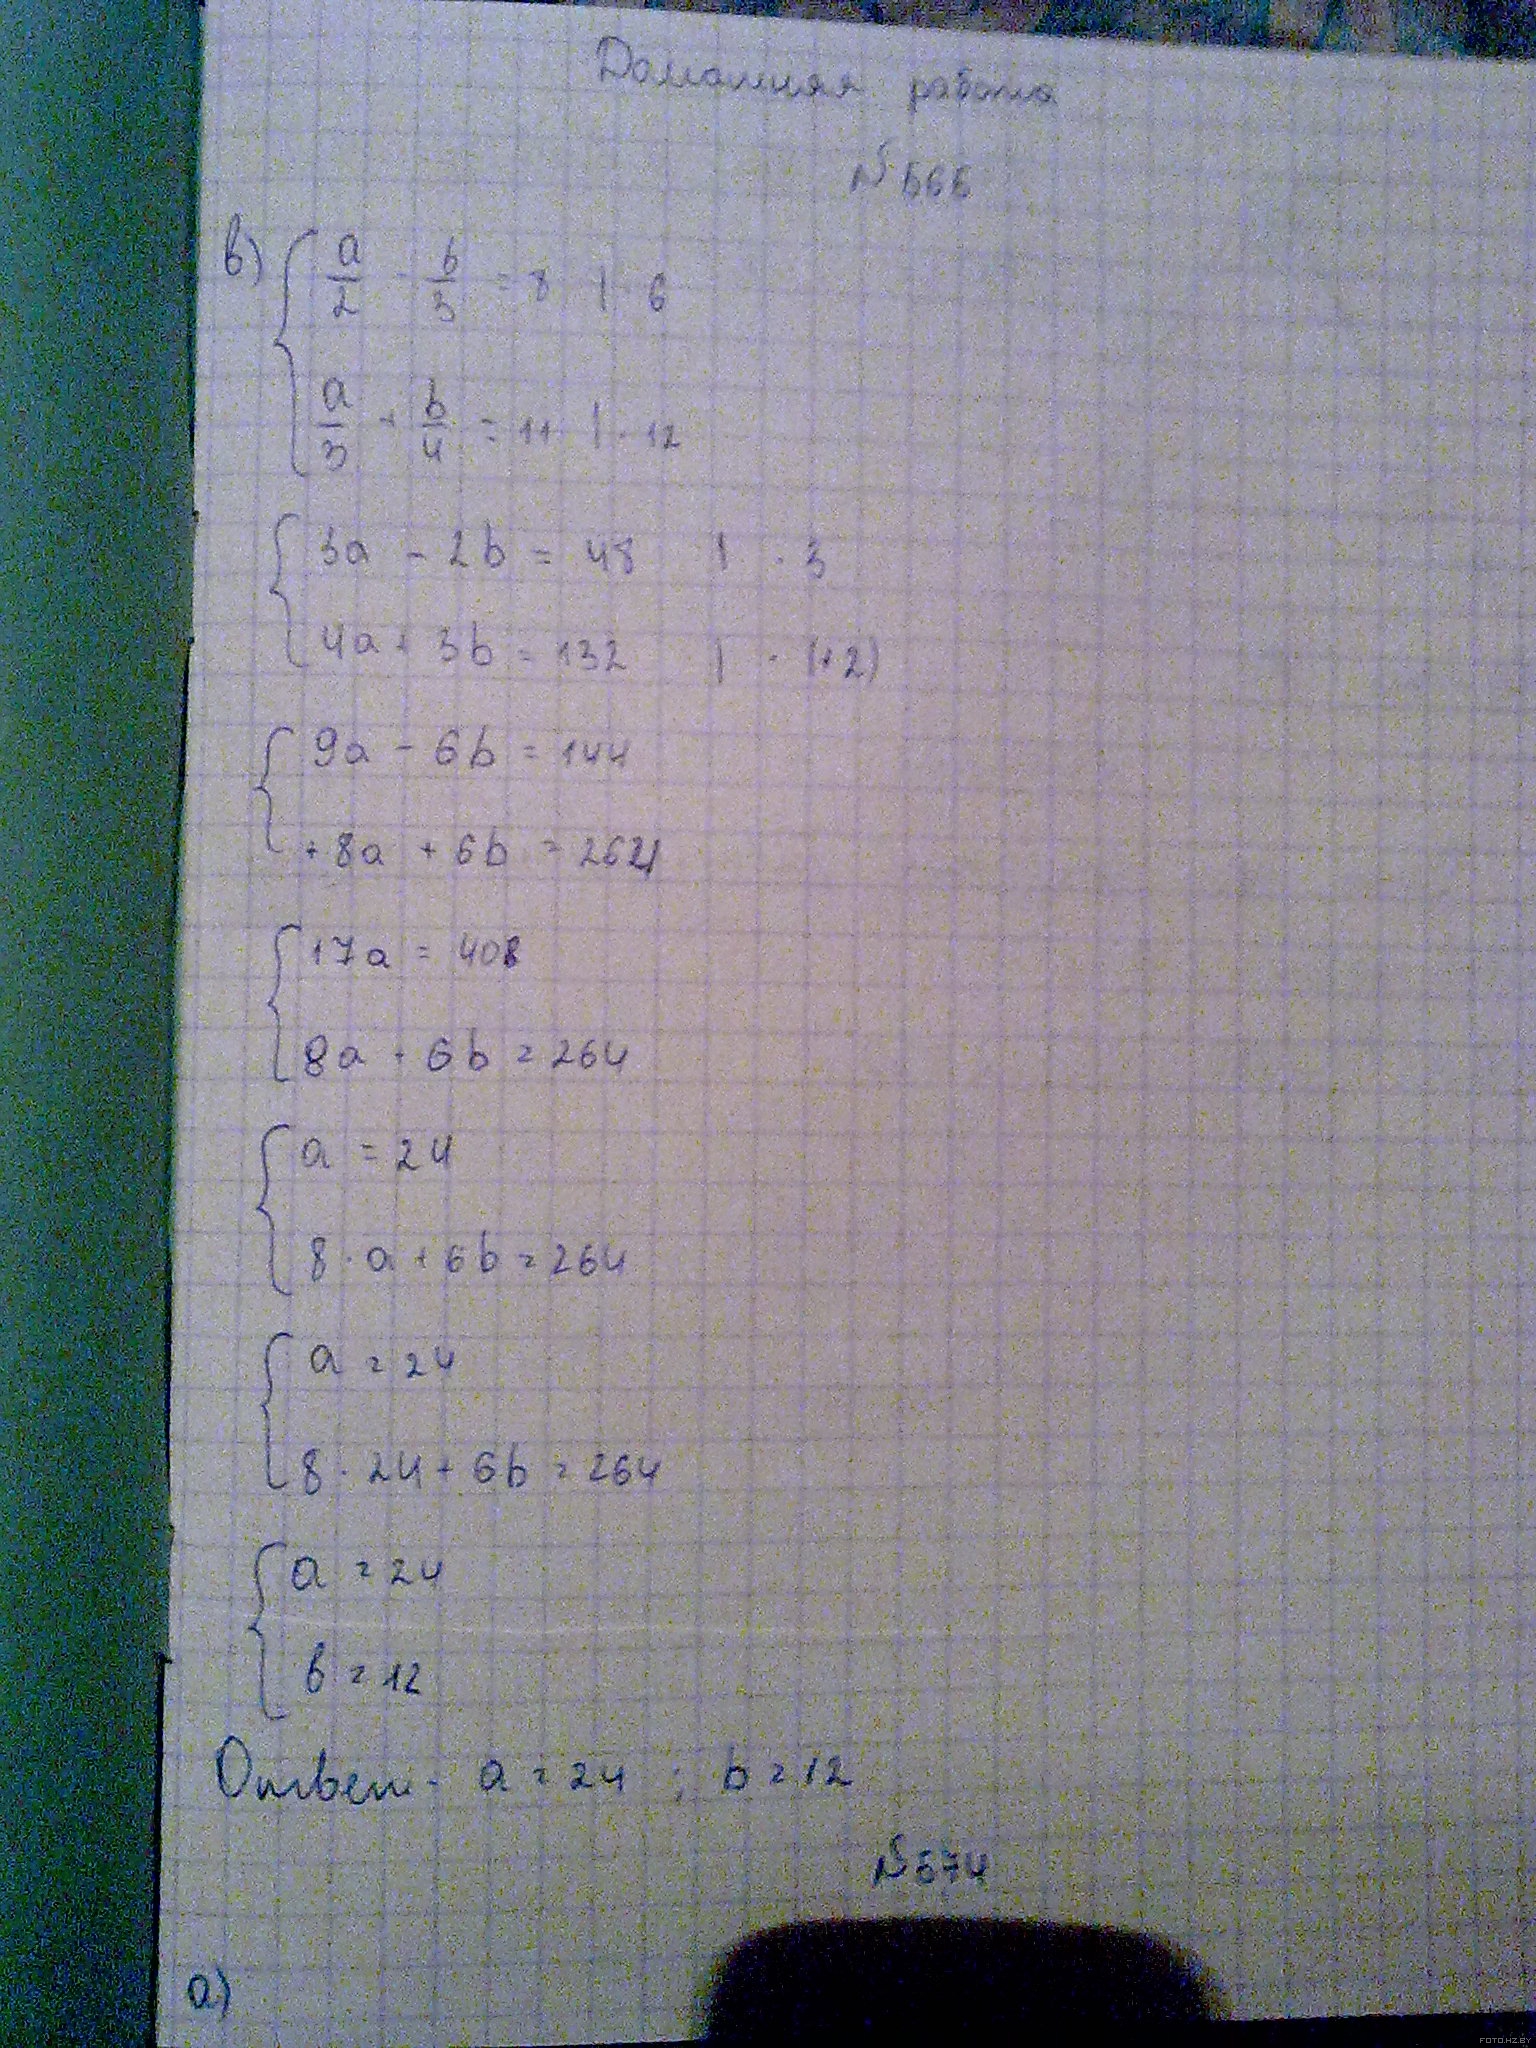 Домашняя работа
№ 566
в) { a/2 - b/3 = 8 | · 6
a/3 + b/4 = 11 | · 12
{ 3a - 2b = 48 | · 3
4a + 3b = 132 | · (+2)
{ 9a - 6b = 144
+ 8a + 6b = 264
{ 17a = 408
8a + 6b = 264
{ a = 24
8 · a + 6b = 264
{ a = 24
8 · 24 + 6b = 264
{ a = 24
b = 12
Ответ - a = 24 ; b = 12
№ 574
а)
FOTO.HZ.BY